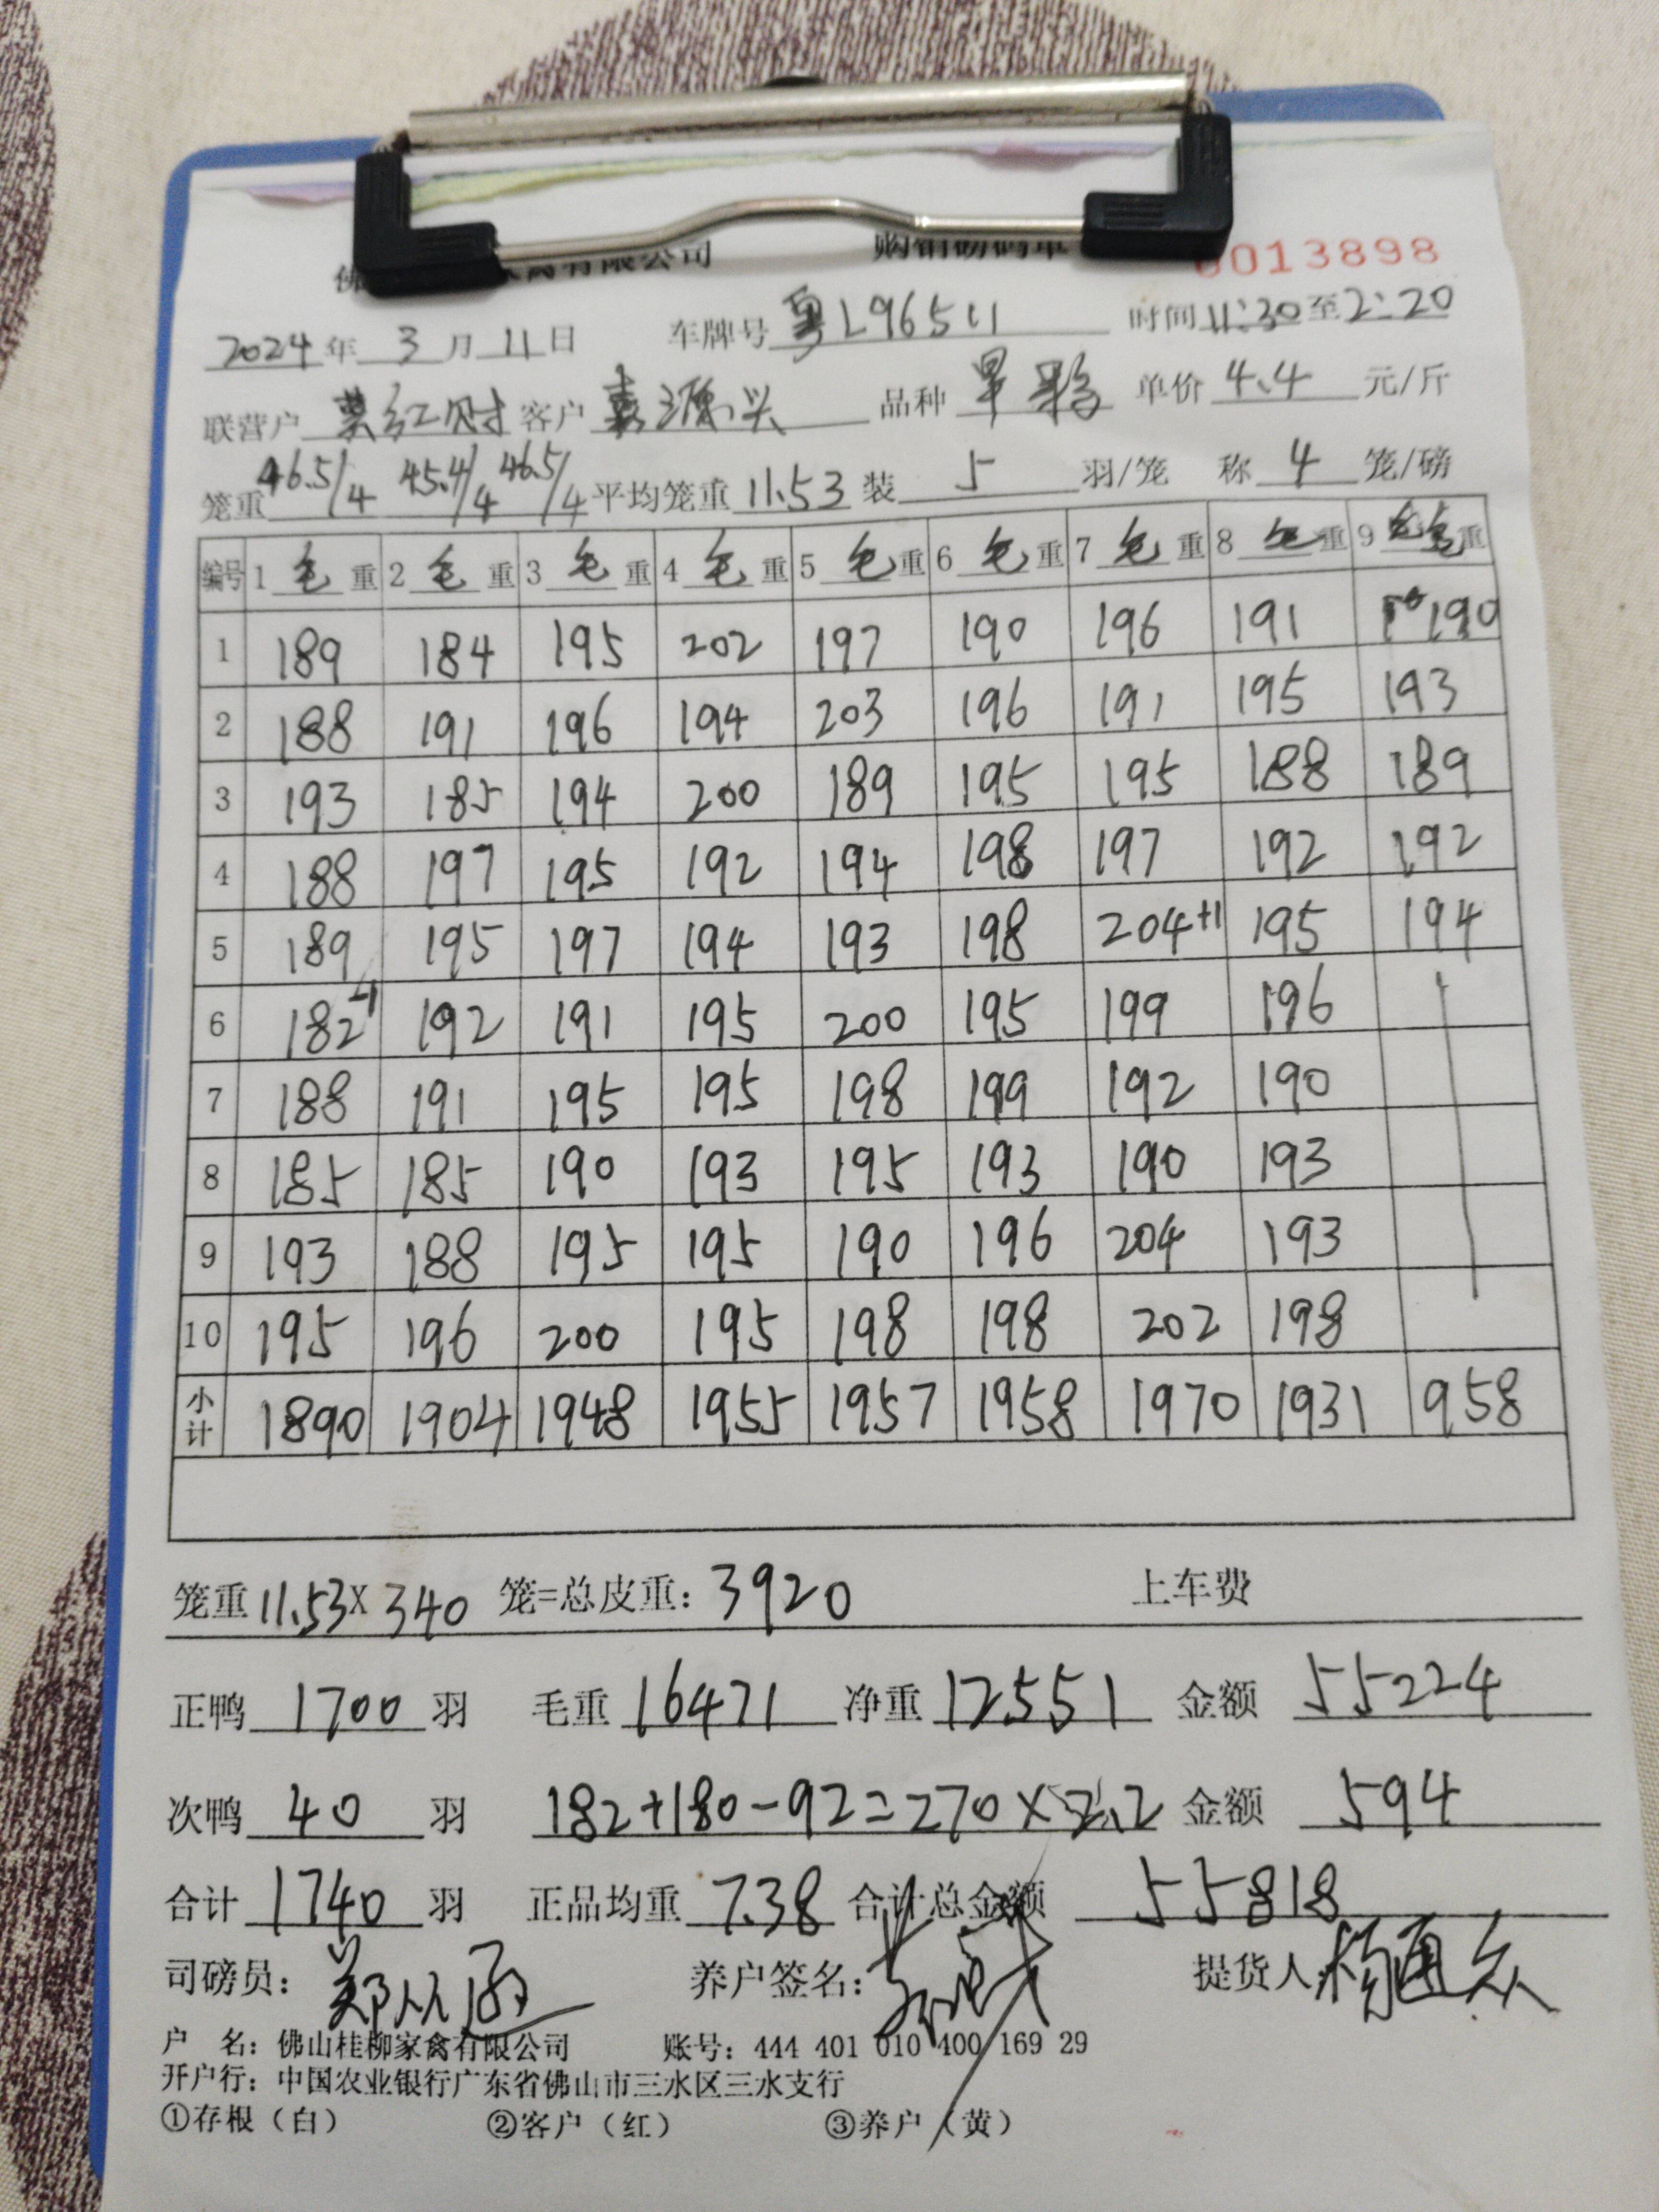 有限公司 购销磅码单 0013898
2024年3月11日 车牌号 粤L96511 时间11:30至2:20
联营户 莫红财 客户 嘉源兴 品种 单价4.4元/斤
笼重46.5/4 45.4/4 46.5/4 平均笼重11.53 装5羽/笼 称4笼/磅
编号 1毛重 2毛重 3毛重 4毛重 5毛重 6毛重 7毛重 8毛重 9毛重
1 189 184 195 202 197 190 196 191 190
2 188 191 196 194 203 196 191 195 193
3 193 185 194 200 189 195 195 188 189
4 188 197 195 192 194 198 197 192 192
5 189 195 197 194 193 198 204+1 195 194
6 182-1 192 191 195 200 195 199 196
7 188 191 195 195 198 199 192 190
8 185 185 190 193 195 193 190 193
9 193 188 195 195 190 196 204 193
10 195 196 200 195 198 198 202 198
小计 1890 1904 1948 1955 1957 1958 1970 1931 958
笼重11.53×340 笼=总皮重:3920 上车费
正鸭1700羽 毛重16471 净重12551 金额55224
次鸭40羽 182+180-92=270×2.2 金额594
合计1740羽 正品均重7.38 合计总金额55818
司磅员: 养户签名: 提货人
户 名:佛山桂柳家禽有限公司 账号:444 401 010 400 169 29
开户行:中国农业银行广东省佛山市三水区三水支行
①存根(白) ②客户(红) ③养户(黄)